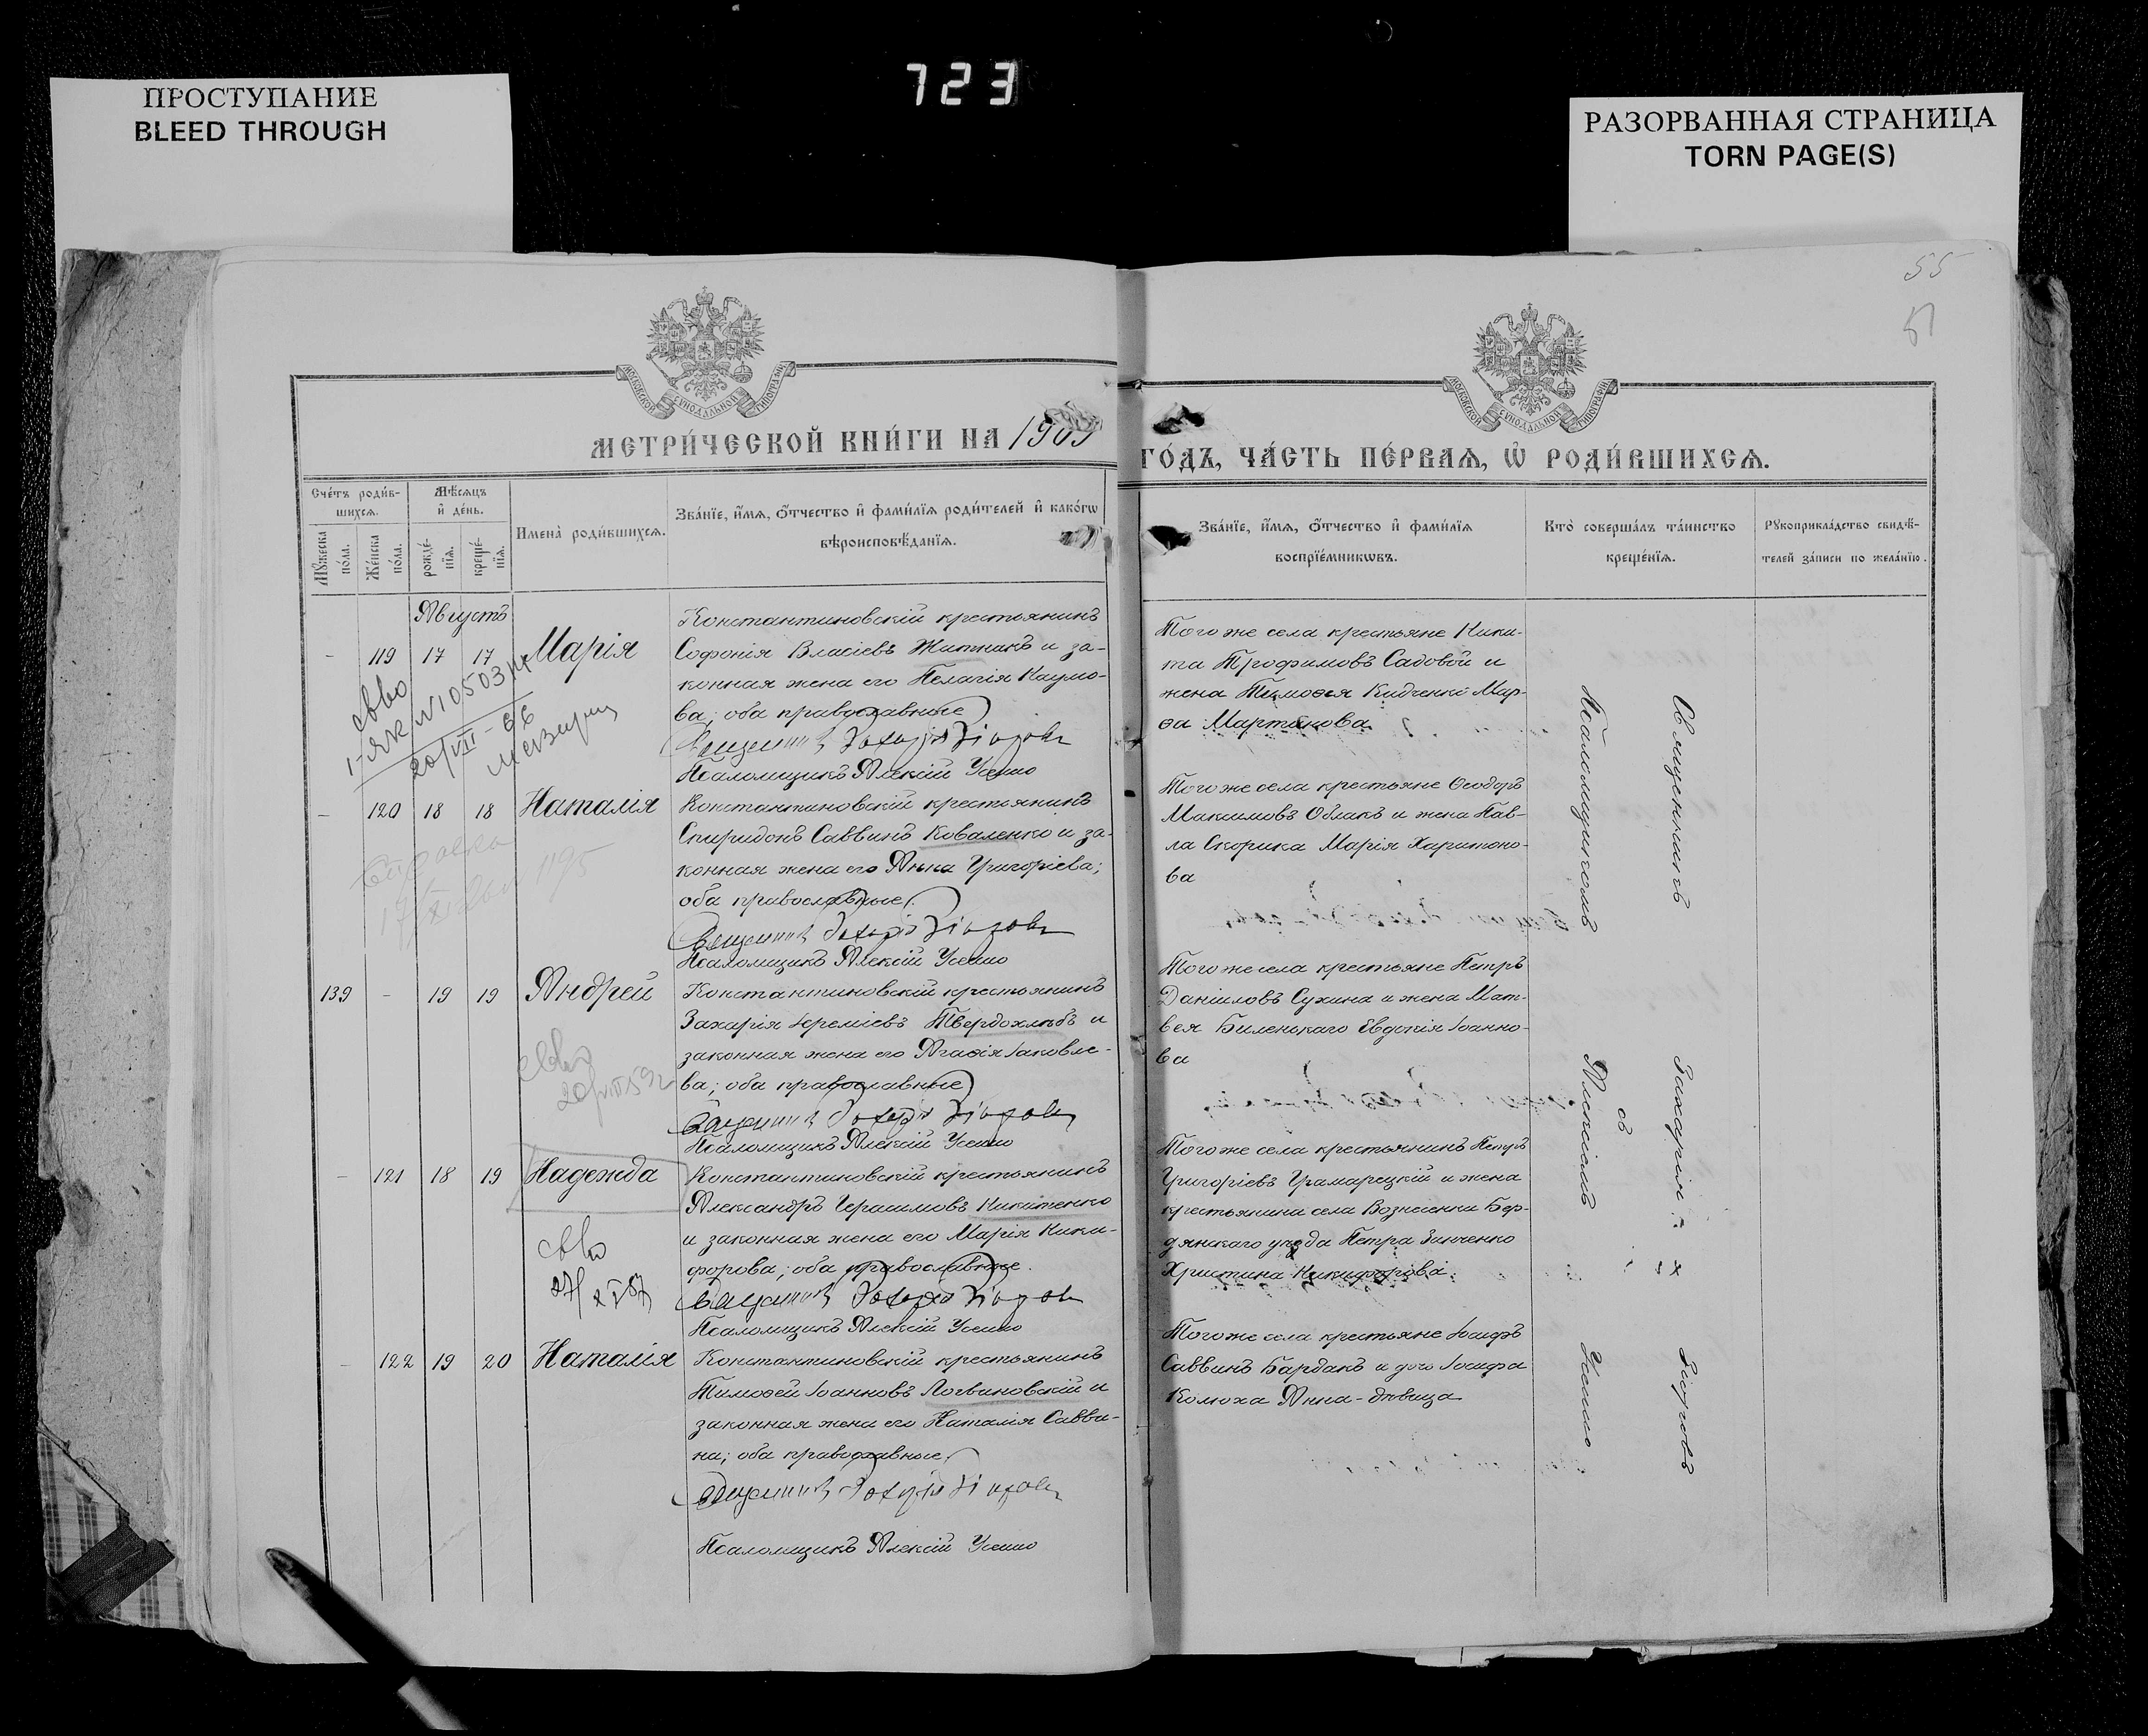 723
ПРОСТУПАНИЕ
BLEED THROUGH
РАЗОРВАННАЯ СТРАНИЦА
TORN PAGE(S)
55
51
МОСКОВСКОЙ СѴНОДАЛЬНОЙ ТИПОГРАФІИ
МОСКОВСКОЙ СѴНОДАЛЬНОЙ ТИПОГРАФІИ
МЕТРИ́ЧЕСКОЙ КНИ́ГИ НА 1909
ГО́ДЪ, ЧА́СТЬ ПЕ́РВАѦ, Ѡ҆ РОДИ́ВШИХСѦ.
Сче́тъ роди́в-
шихсѧ.
Мꙋ́жеска по́ла.
Же́нска по́ла.
Мѣ́сѧцъ
и҆ де́нь.
рожде́-
нїѧ.
креще́-
нїѧ.
И҆мена̀ роди́вшихсѧ.
Зва́нїе, и҆́мѧ, ѻ҆́тчество и҆ фами́лїѧ роди́телей и҆ како́гѡ
вѣроисповѣ́данїѧ.
Зва́нїе, и҆́мѧ, ѻ҆́тчество и҆ фами́лїѧ
воспрїе́мникѡвъ.
Кто̀ соверша́лъ та́инство
креще́нїѧ.
Рꙋкоприкла́дство свидѣ́-
телей за́писи по жела́нїю.
Августъ
- 119 17 17 Марія
Константиновскій крестьянинъ
Софонія Власіевъ Житникъ и за-
конная жена его Пелагія Наумо-
ва; оба православные
Священникъ Захарія Біоровъ
Псаломщикъ Алексій Усенко
Того же села крестьяне Ники-
та Трофимовъ Садовой и
жена Тимоѳея Кидченка Мар-
ѳа Мартинова
св-во
I-ЯК №105031
20/VII-66
- 120 18 18 Наталія
Константиновскій крестьянинъ
Спиридонъ Саввинъ Коваленко и за-
конная жена его Анна Григоріева;
оба православные.
Священникъ Захарія Біоровъ
Псаломщикъ Алексій Усенко
Того же села крестьяне Ѳеодоръ
Максимовъ Облакъ и жена Пав-
ла Скорика Марія Харитоно-
ва
1195
139 - 19 19 Андрей
Константиновскій крестьянинъ
Захарія Іереміевъ Твердохлѣбъ и
законная жена его Агаѳія Іаковле-
ва; оба православные
Священникъ Захарія Біоровъ
Псаломщикъ Алексій Усенко
Того же села крестьяне Петръ
Даніиловъ Сухина и жена Мат-
вея Биленькаго Евдокія Іоанно-
ва
св-во
- 121 18 19 Надежда
Константиновскій крестьянинъ
Александръ Герасимовъ Никитенко
и законная жена его Марія Ники-
форова; оба православные.
Священникъ Захарія Біоровъ
Псаломщикъ Алексій Усенко
Того же села крестьянинъ Петръ
Григоріевъ Грамарецкій и жена
крестьянина села Вознесенки Бер-
дянскаго уѣзда Петра Зинченко
Христина Никифорова.
св-во
- 122 19 20 Наталія
Константиновскій крестьянинъ
Тимоѳей Іоанновъ Логвиновскій и
законная жена его Наталія Савви-
на; оба православные
Священникъ Захарія Біоровъ
Псаломщикъ Алексій Усенко
Того же села крестьяне Іосифъ
Саввинъ Бардакъ и дочь Іосифа
Колюха Анна-дѣвица
Священникъ Захарія Біоровъ
съ
Псаломщикомъ Алексіемъ Усенко